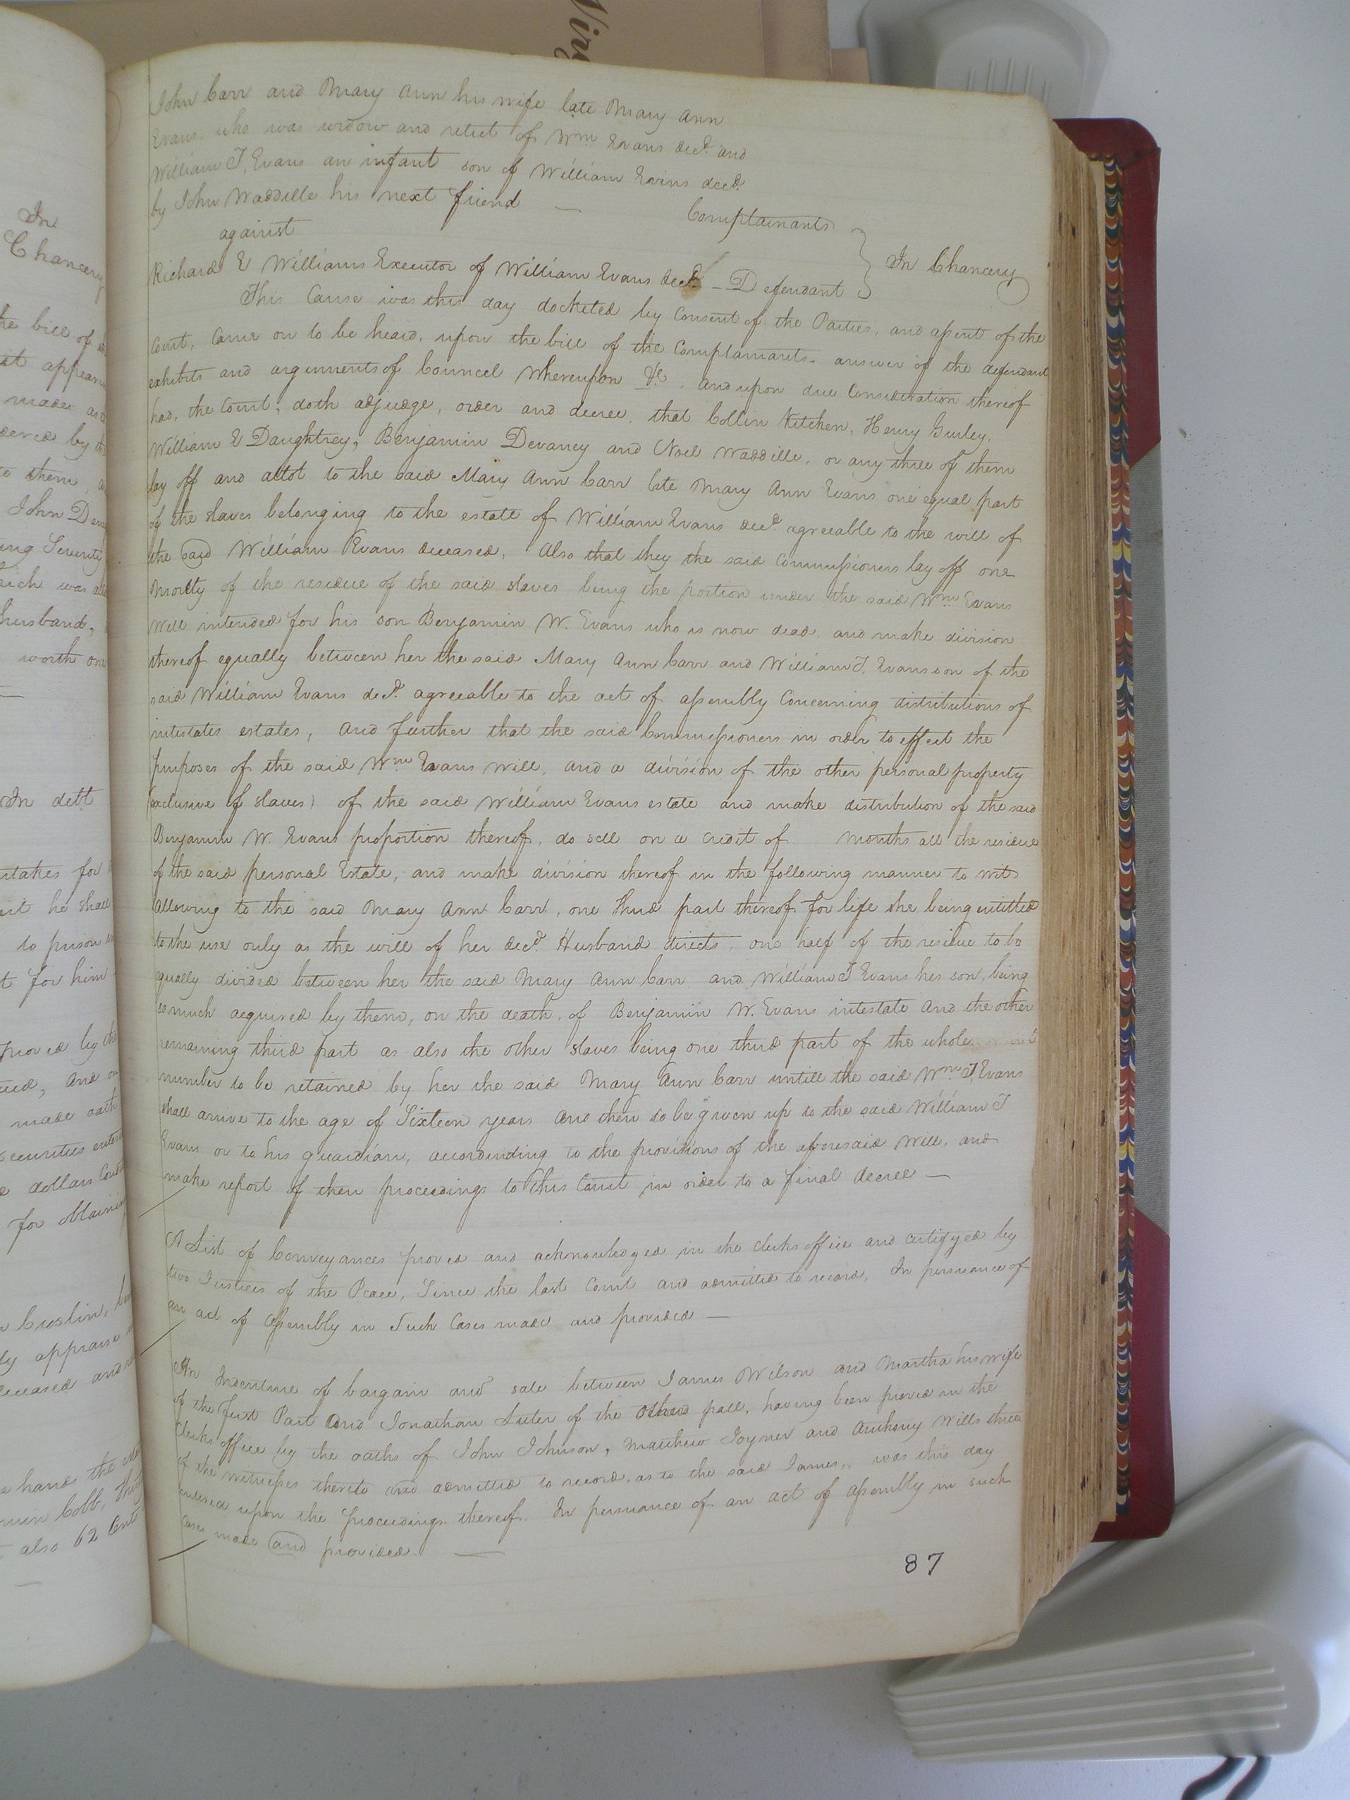 Virg
In
Chancery
the bill of
it appear
made and
dered by
to them, a
John D
ing Seventy
hich was
husband,
worth one
In debt
rtakes for
urt he shall
to prison
t for him
proved by the
and
made oath
securities
e dollars
for obtaining
Croslin,
ly appraise
deceased and
e hands the
min Cobb,
also 62 Cents
John Carr and Mary Ann his wife late Mary Ann
Evans who was widow and relict of Wm Evans decd. and
William T. Evans an infant son of William Evans decd.
by John Waddille his next friend — Complainants
against
In Chancery
Richard E Williams Executor of William Evans decd. — Defendant
This Cause was this day docketed by Consent of the Parties, and assent of the
Court, Came on to be heard, upon the bill of the Complainants answer of the defendant
exhibits and arguments of Councel Whereupon &c. and upon due Consideration thereof
had, the Court; doth adjudge, order and decree, that Collin Kitchen, Henry Gurley,
William E Daughtrey, Benjamin Devaney and Noel Waddille, or any three of them
lay off and allot to the said Mary Ann Carr late Mary Ann Evans one equal part
of the slaves belonging to the estate of William Evans decd. agreeable to the will of
the said William Evans deceased, Also that they the said Commissioners lay off one
Moiety of the residue of the said slaves being the portion under the said Wm Evans
Will intended for his son Benjamin W. Evans who is now dead, and make division
thereof equally between her the said Mary Ann Carr and William T. Evans son of the
said William Evans decd. agreeable to the act of assembly Concerning distributions of
intestates estates, and further that the said Commissioners in order to effect the
purposes of the said Wm Evans will, and a division of the other personal property
(exclusive of slaves) of the said William Evans estate and make distribution of the said
Benjamin W. Evans proportion thereof, do sell on a credit of months all the residue
of the said personal Estate, and make division thereof in the following manner to wit
allowing to the said Mary Ann Carr, one third part thereof for life she being entitled
to the use only as the will of her decd. Husband directs, one half of the residue to be
equally divided between her the said Mary Ann Carr and William T Evans her son, being
so much acquired by them, on the death, of Benjamin W. Evans intestate and the other
remaining third part as also the other slaves being one third part of the whole
number to be retained by her the said Mary Ann Carr untill the said Wm T. Evans
shall arrive to the age of Sixteen years and then to be given up to the said William T
Evans or to his guardian, accordending to the provisions of the aforesaid Will, and
make report of their proceedings to this Court in order to a final decree —
A List of Conveyances proved and acknowledged in the clerks office and certifyed by
two Justices of the Peace, Since the last Court and admitted to record, In persuance of
an act of Assembly in Such Cases made and provided —
An Indenture of bargain and sale between James Wilson and Martha his wife
of the first Part and Jonathan Luter of the other part, having been proved in the
Clerks office by the oaths of John Johnson, Matthew Joyner and Anthony Wills three
of the witnesses thereto and admitted to record, as to the said James, was this day
entered upon the proceedings thereof. In persuance of an act of assembly in such
cases made and provided. —
87